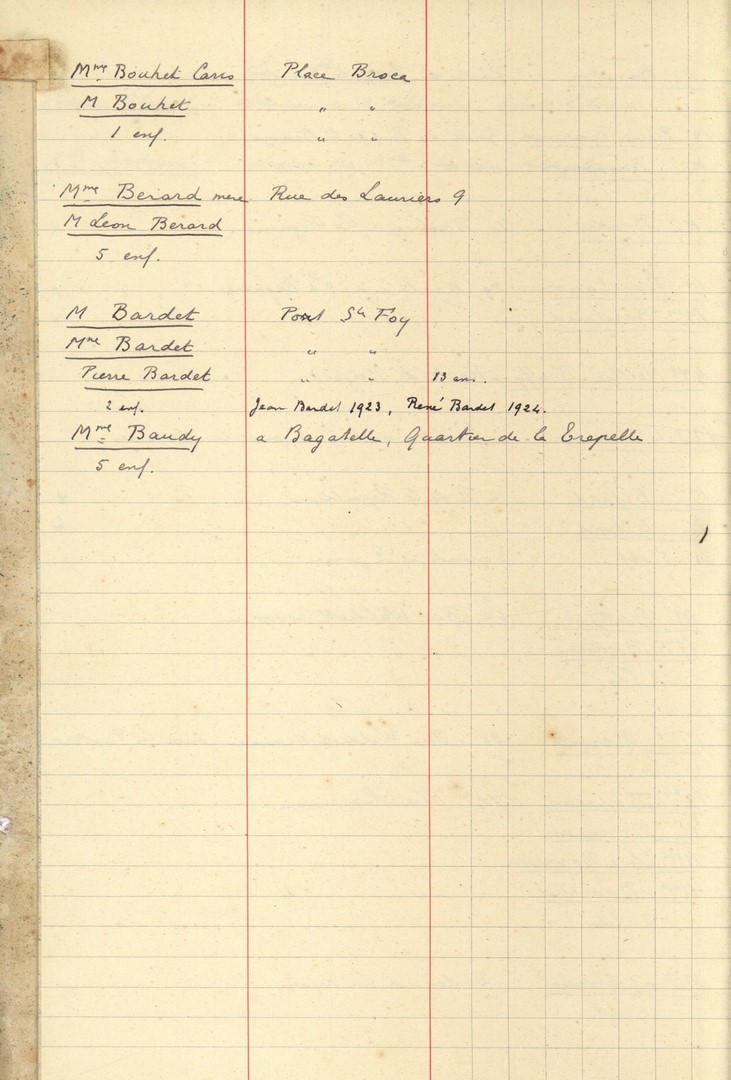 Mme Bouhet Caris Place Broca
M Bouhet " "
1 enf. " "
Mme Berard mere Rue des Lauriers 9
M Leon Berard
5 enf.
M Bardet Pont Ste Foy
Mme Bardet " "
Pierre Bardet " " 13 ans.
2 enf. Jean Bardet 1923, René Bardet 1924.
Mme Baudy a Bagatelle, Quartier de la
5 enf.